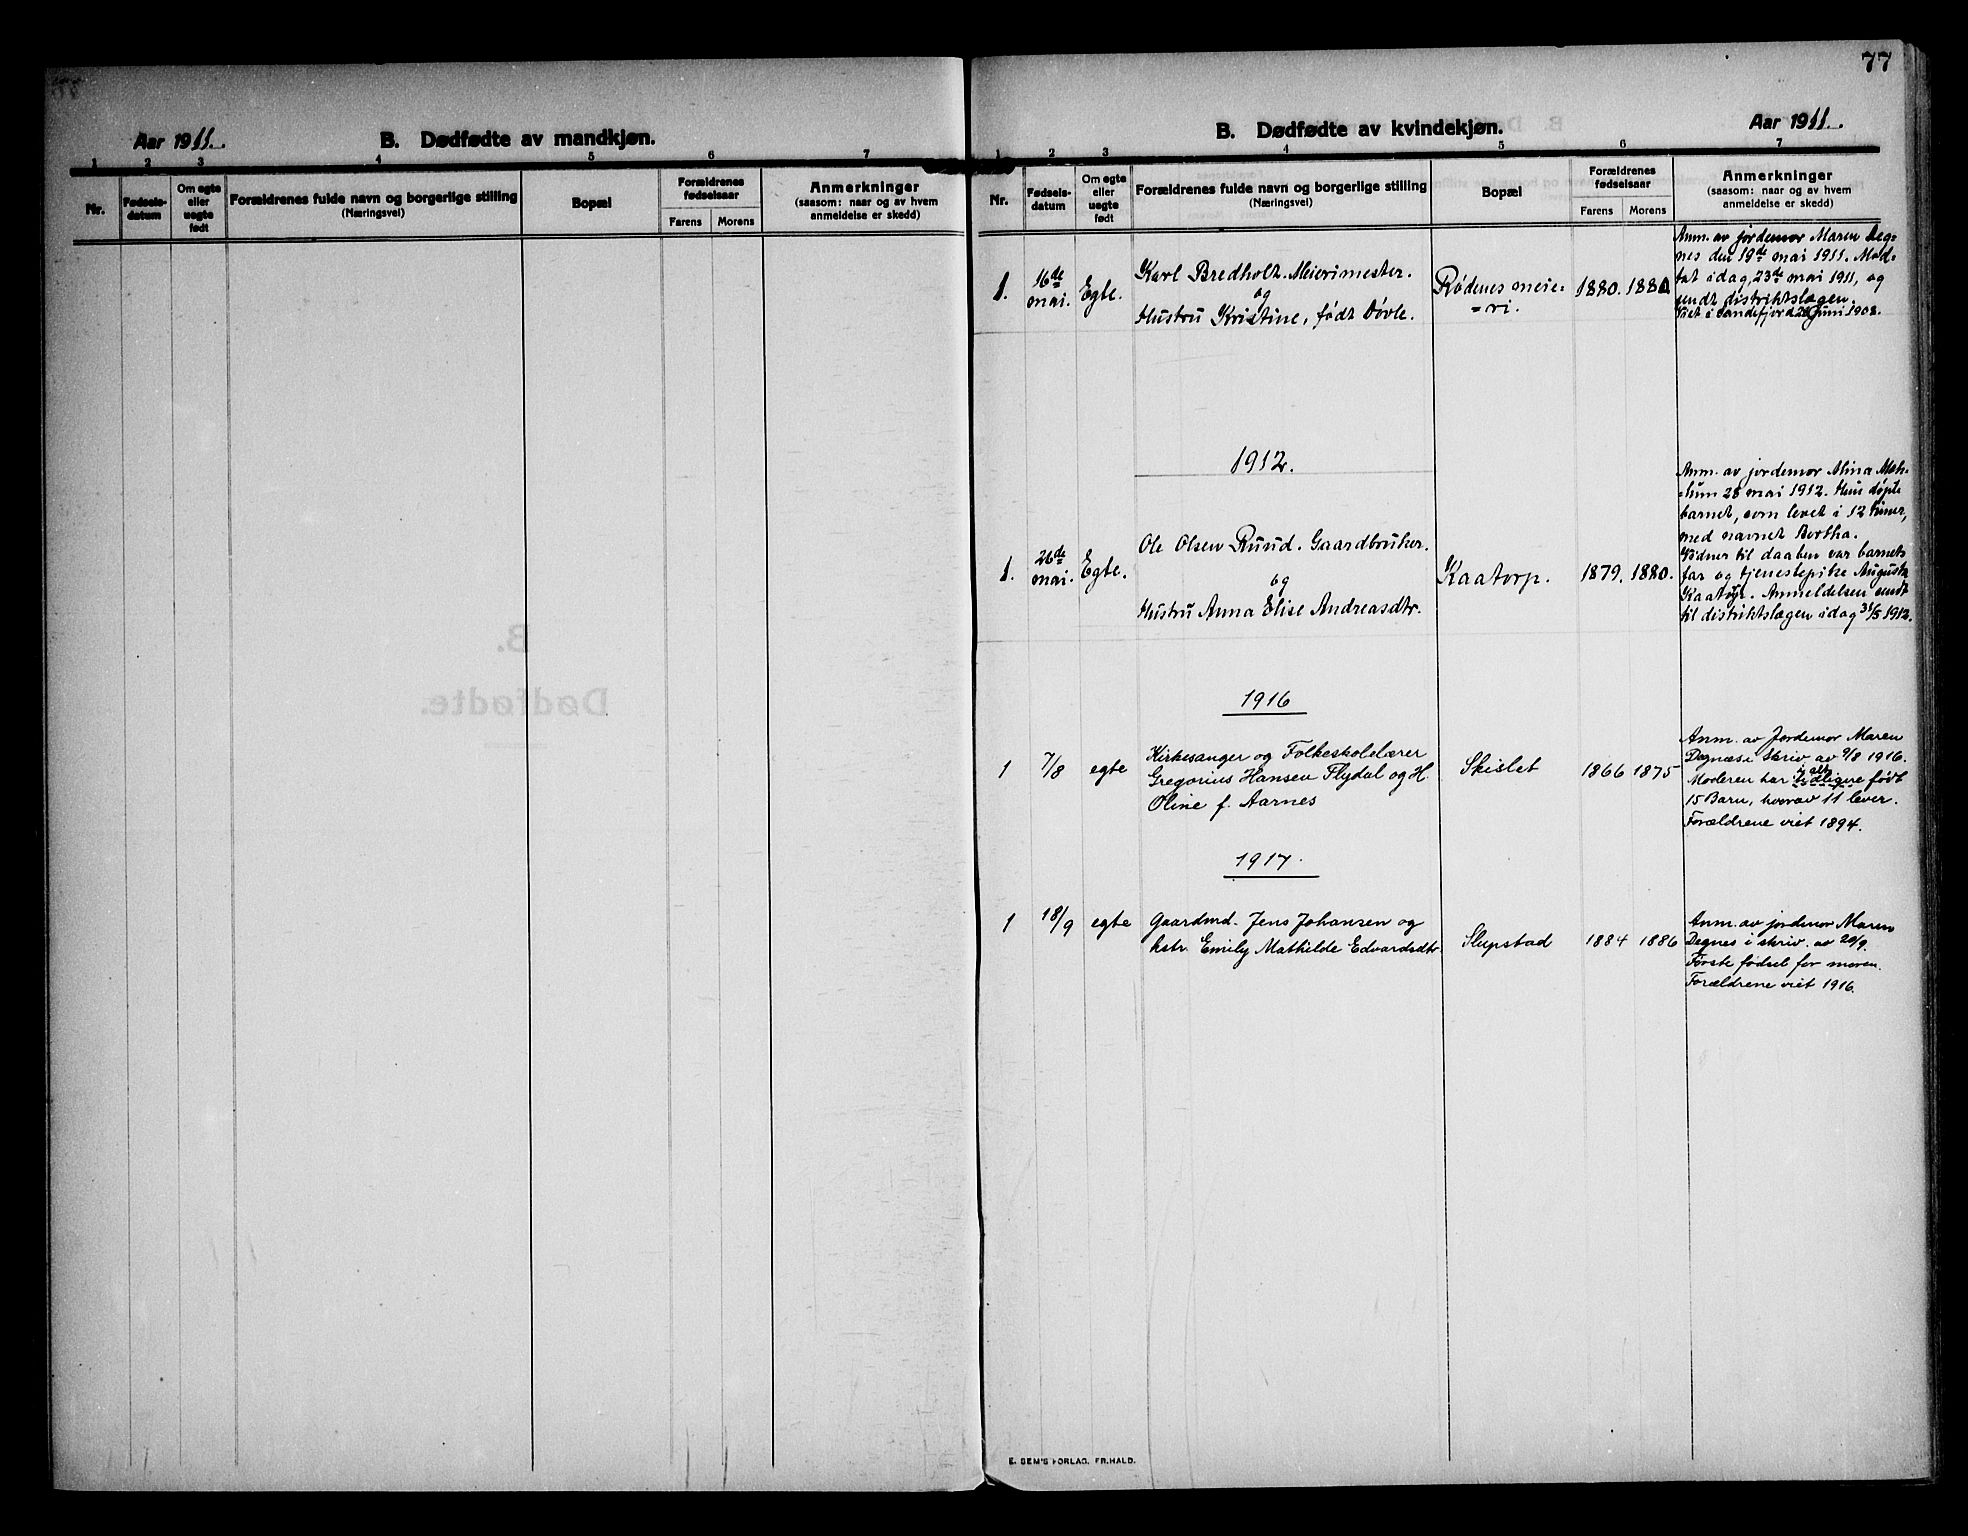 77
Aar 1911.
B. Dødfødte av mandkjøn.
1 2 3 4 5 6 7
Nr.
Fødsels-
datum
Om egte
eller
uegte
født
Forældrenes fulde navn og borgerlige stilling
(Næringsvei)
Bopæl
Forældrenes
fødselsaar
Farens Morens
Anmerkninger
(saasom: naar og av hvem
anmeldelse er skedd)
B.
Dødfødte.
B. Dødfødte av kvindekjøn.
Aar 1911.
1 2 3 4 5 6 7
Nr.
Fødsels-
datum
Om egte
eller
uegte
født
Forældrenes fulde navn og borgerlige stilling
(Næringsvei)
Bopæl
Forældrenes
fødselsaar
Farens Morens
Anmerkninger
(saasom: naar og av hvem
anmeldelse er skedd)
1.
16de
mai.
Egte.
Karl Bredholt. Meierimester.
og
Hustru Kristine, født Døvle.
Rødenes meie-
=ri.
1880. 1880
Anm. av jordemor Maren Deg-
nes den 19de mai 1911. Mod-
tat idag, 23de mai 1911, og
sendt distriktslægen.
Viet i Sandefjord juni 1908.
1912.
1.
26de
mai.
Egte.
Ole Olsen Ruud. Gaardbruker.
og
Hustru Anna Elise Andreasdtr.
Kaatorp.
1879. 1880.
Anm. av jordemor Alina
28 mai 1912. Hun døpte
barnet, som levet i 12 timer,
med navnet Bertha.
Vidner til daaben var barnets
far og tjenestepike Augusta
Kaatorp. Anmeldelsen sendt
til distriktslægen idag 31/5 1912.
1916
1
7/8
egte
Kirkesanger og Folkeskolelærer
Gregorius Hansen Flydal og H.
Oline f. Aarnes
Skislet
1866 1875
Anm. av Jordemor Maren
Degnæs i Skriv av 9/8 1916.
Moderen har i alt tidligere født
15 Barn, hvorav 11 lever.
Forældrene viet 1894.
1917.
1
18/9
egte
Gaardmd. Jens Johansen og
hstr. Emily Mathilde Edvardsdtr
Slupstad
1884 1886
Anm. av jordemor Maren
Degnes i skriv. av 20/9.
Første fødsel for moren.
Forældrene viet 1916.
E. SEM'S FORLAG, FR.HALD.